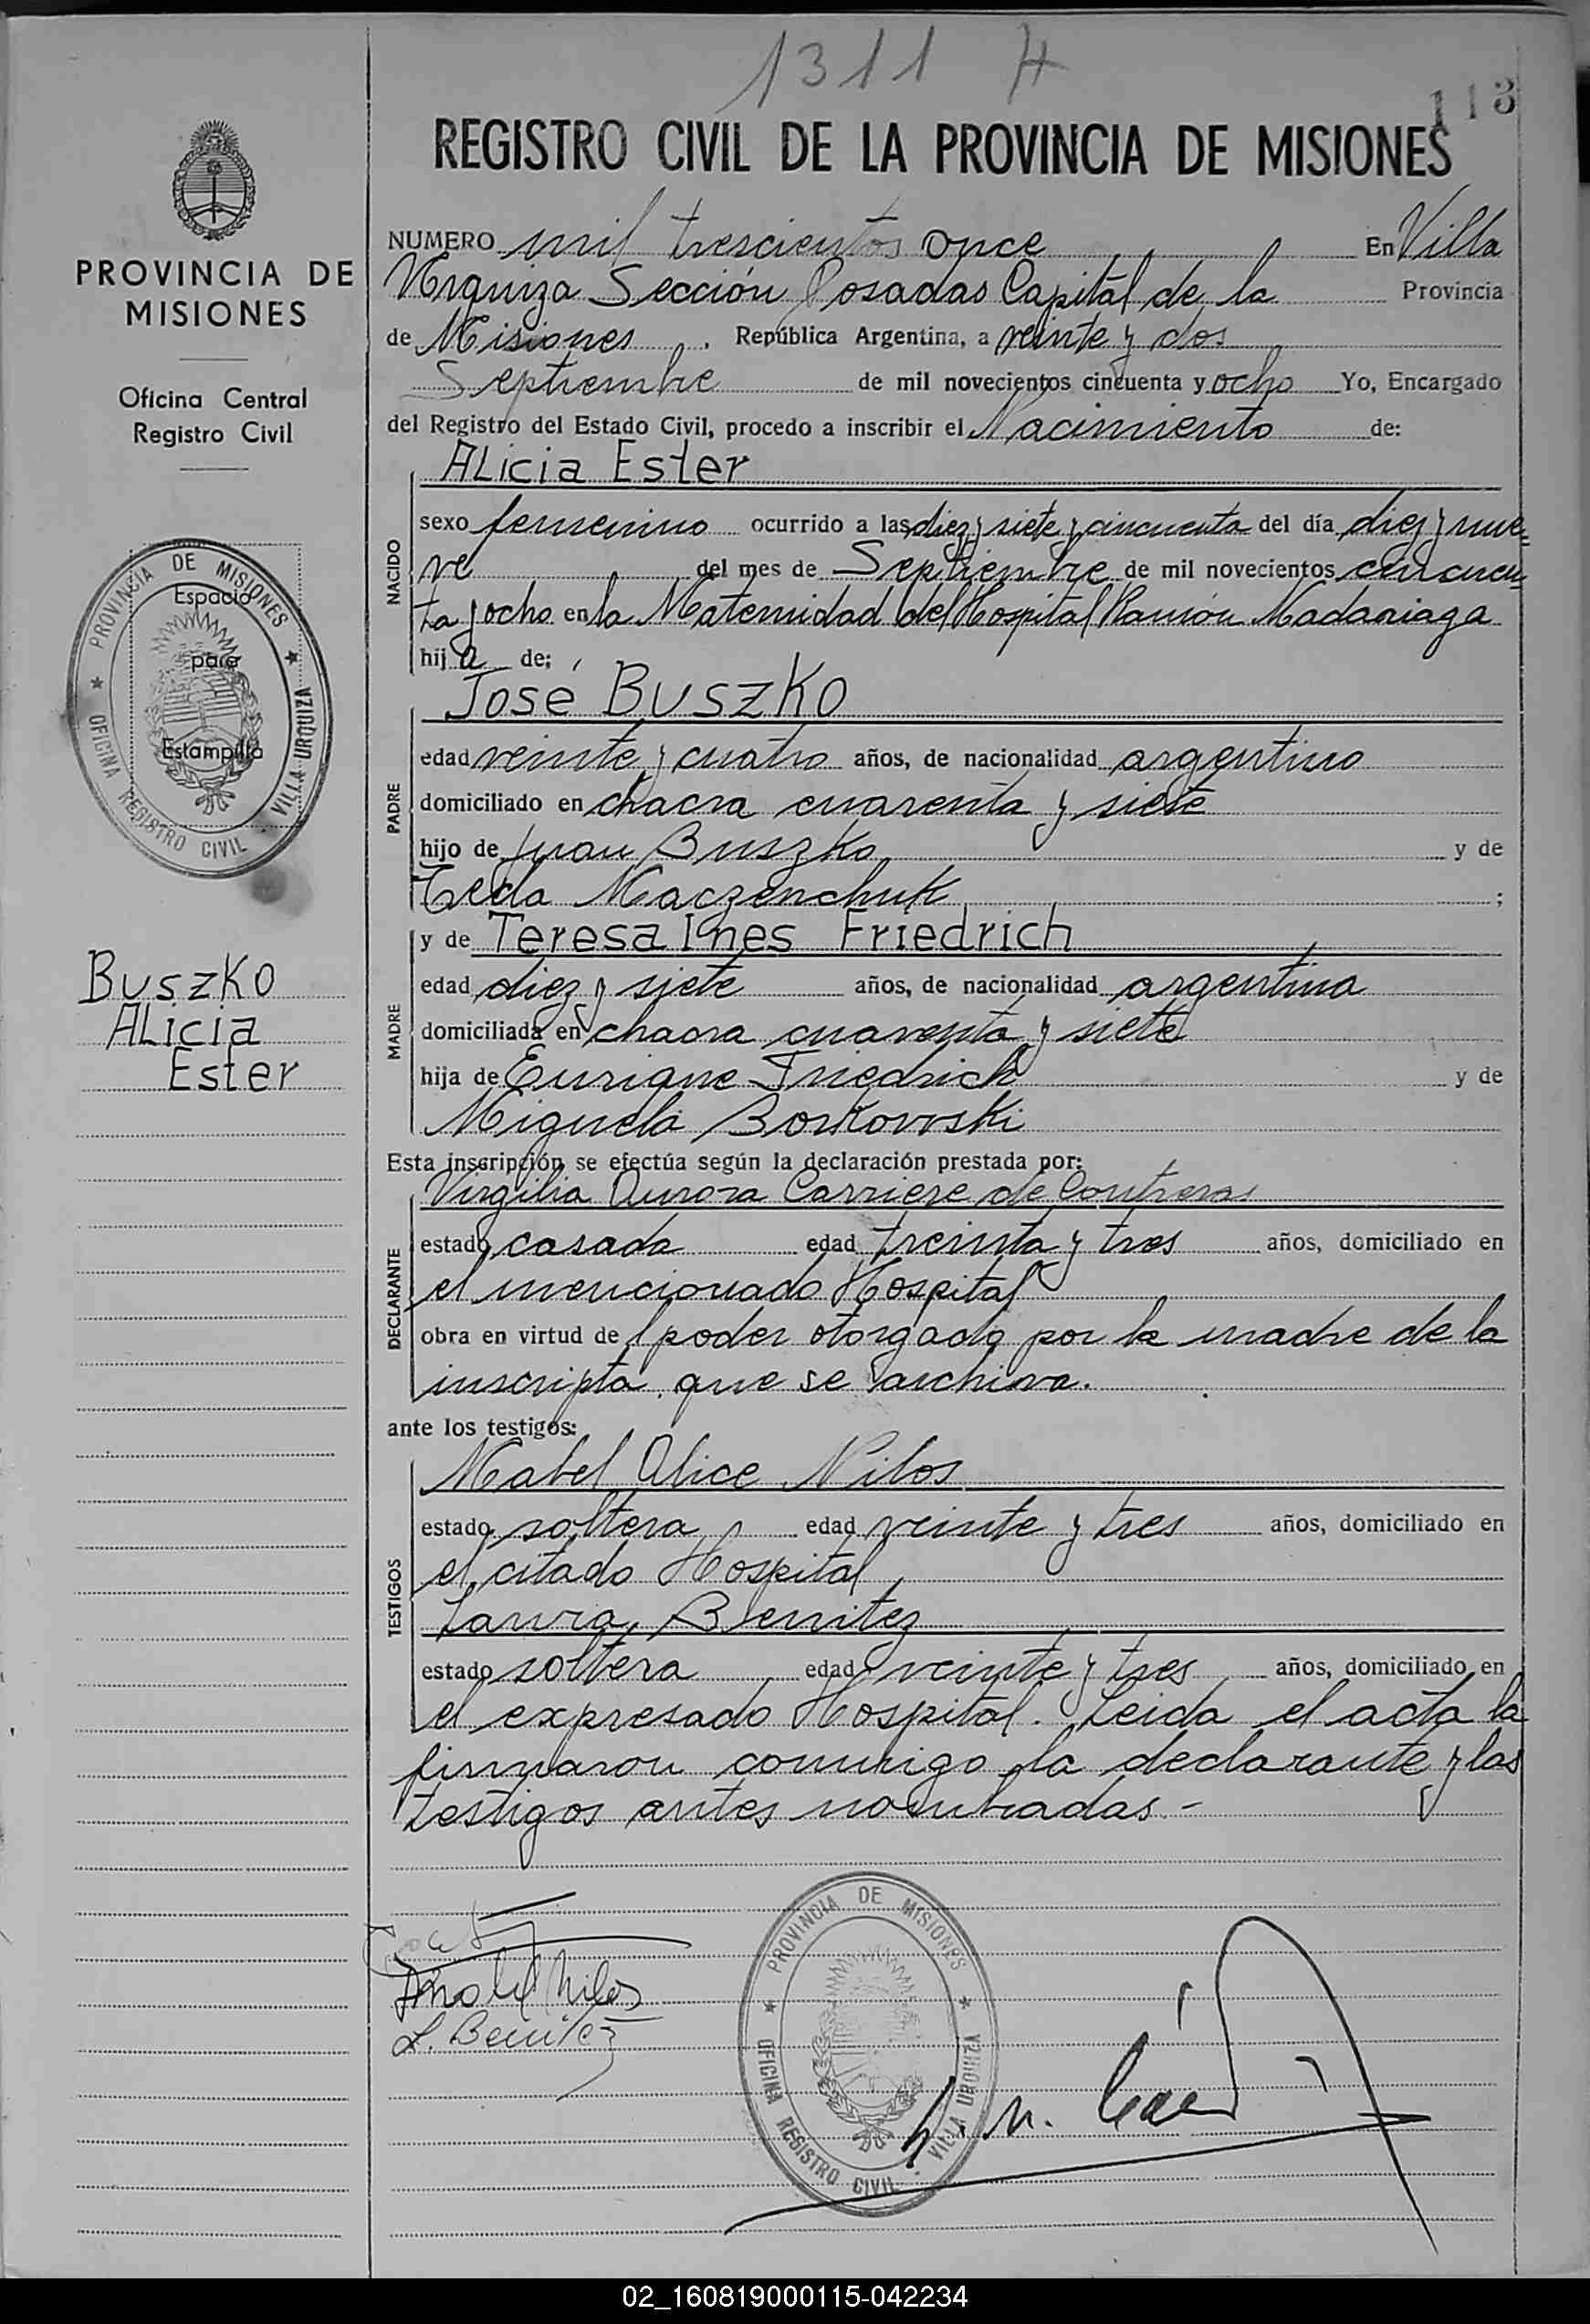 1311 H
113
REGISTRO CIVIL DE LA PROVINCIA DE MISIONES
PROVINCIA DE
MISIONES
Oficina Central
Registro Civil
PROVINCIA DE MISIONES
OFICINA REGISTRO CIVIL VILLA URQUIZA
Espacio
para
Estampilla
Buszko
Alicia
Ester
NUMERO mil trescientos once En Villa
Urquiza Sección Posadas Capital de la Provincia
de Misiones. República Argentina, a veinte y dos
Septiembre de mil novecientos cincuenta y ocho Yo, Encargado
del Registro del Estado Civil, procedo a inscribir el Nacimiento de:
NACIDO
Alicia Ester
sexo femenino ocurrido a las diez y siete y cincuenta del día diez y nue-
ve del mes de Septiembre de mil novecientos cincuen-
ta y ocho en la Maternidad del Hospital Ramón Madariaga
hija de:
PADRE
José Buszko
edad veinte y cuatro años, de nacionalidad argentino
domiciliado en chacra cuarenta y siete
hijo de Juan Buszko y de
Tecla Maczenchuk ;
MADRE
y de Teresa Ines Friedrich
edad diez y siete años, de nacionalidad argentina
domiciliada en chacra cuarenta y siete
hija de Enrique Friedrich y de
Miguela Borkowski
Esta inscripción se efectúa según la declaración prestada por:
DECLARANTE
Virgilia Aurora Carriere de Contreras
estado casada edad treinta y tres años, domiciliado en
el mencionado Hospital
obra en virtud del poder otorgado por la madre de la
inscripta que se archiva.
ante los testigos:
TESTIGOS
Mabel Alice Nilos
estado soltera edad veinte y tres años, domiciliado en
el citado Hospital
Laura Benitez
estado soltera edad veinte y tres años, domiciliado en
el expresado Hospital. Leida el acta la
firmaron conmigo la declarante y las
testigos antes nombradas -
Mabel Nilos
L. Benitez
PROVINCIA DE MISIONES
OFICINA REGISTRO CIVIL VILLA URQUIZA
02_160819000115-042234